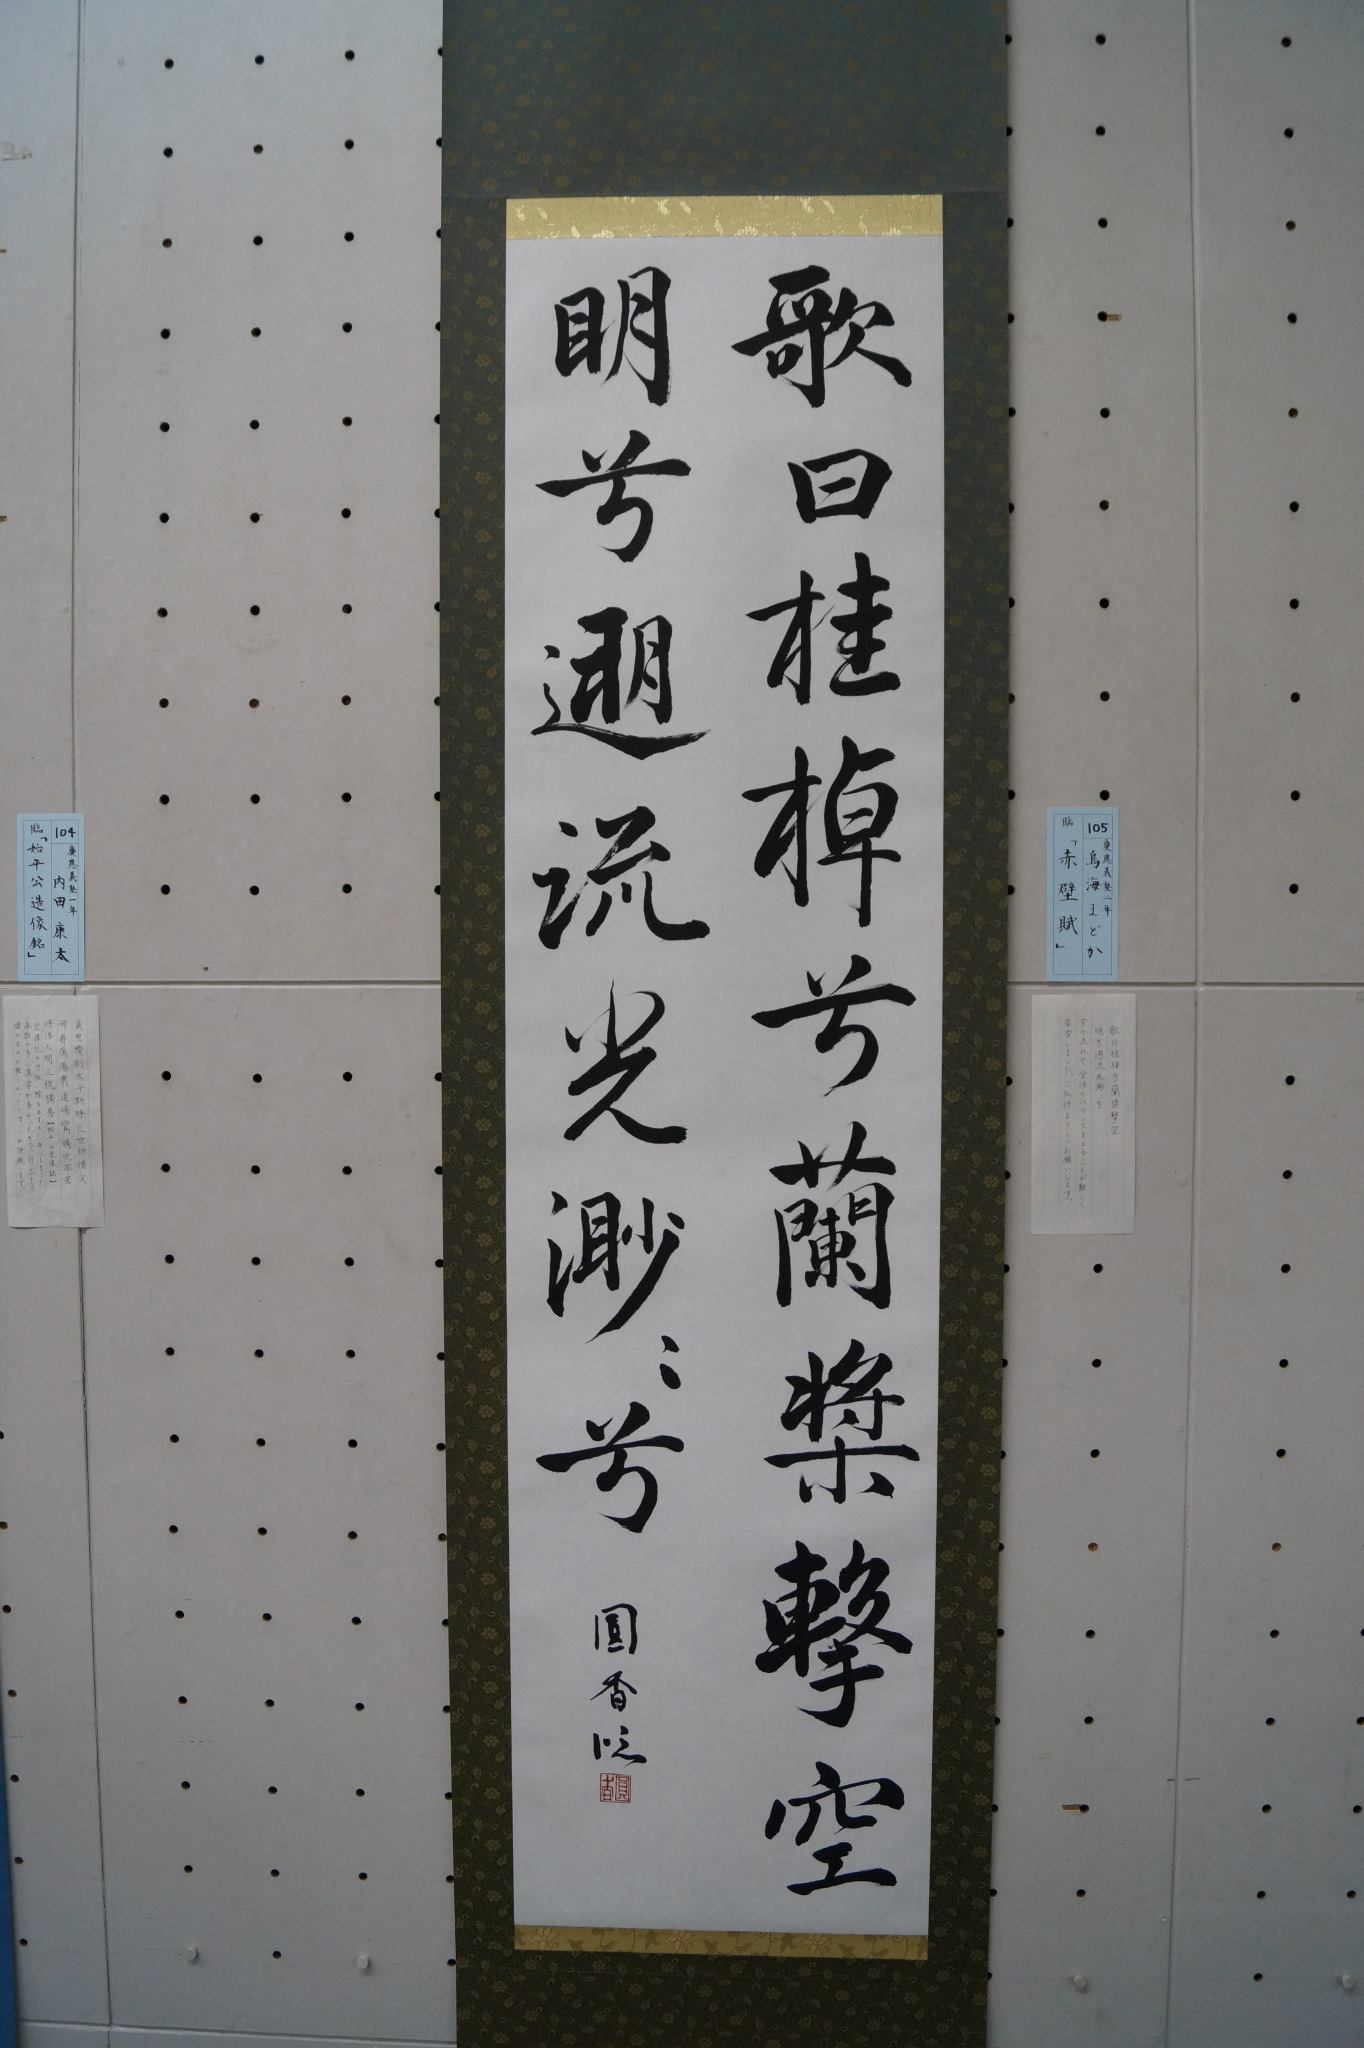 歌曰桂棹兮蘭槳擊空
明兮遡流光渺〻兮
圓香臨
105
慶應義塾一年
鳥海まどか
臨「赤壁賦」
歌曰桂棹兮蘭槳擊空
明兮遡流光渺々兮
104
慶應義塾一年
内田康太
臨「始平公造像銘」